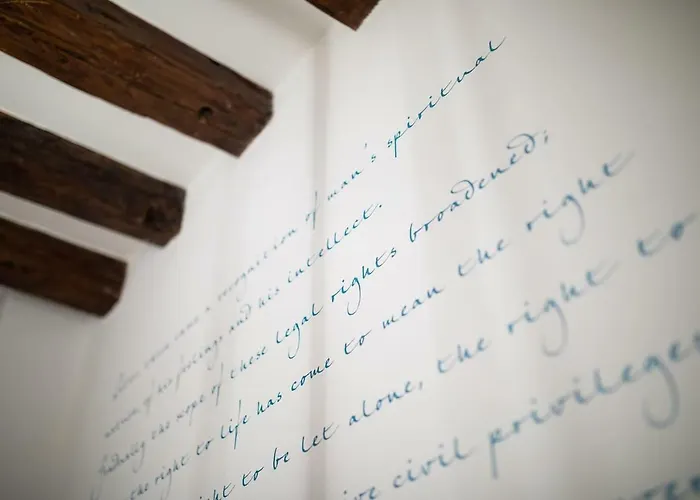 came a recognition of man's spiritual
of his feelings and his intellect.
Gradually the scope of these legal rights broadened;
the right to life has come to mean the right
to be let alone, the right to
civil privileges